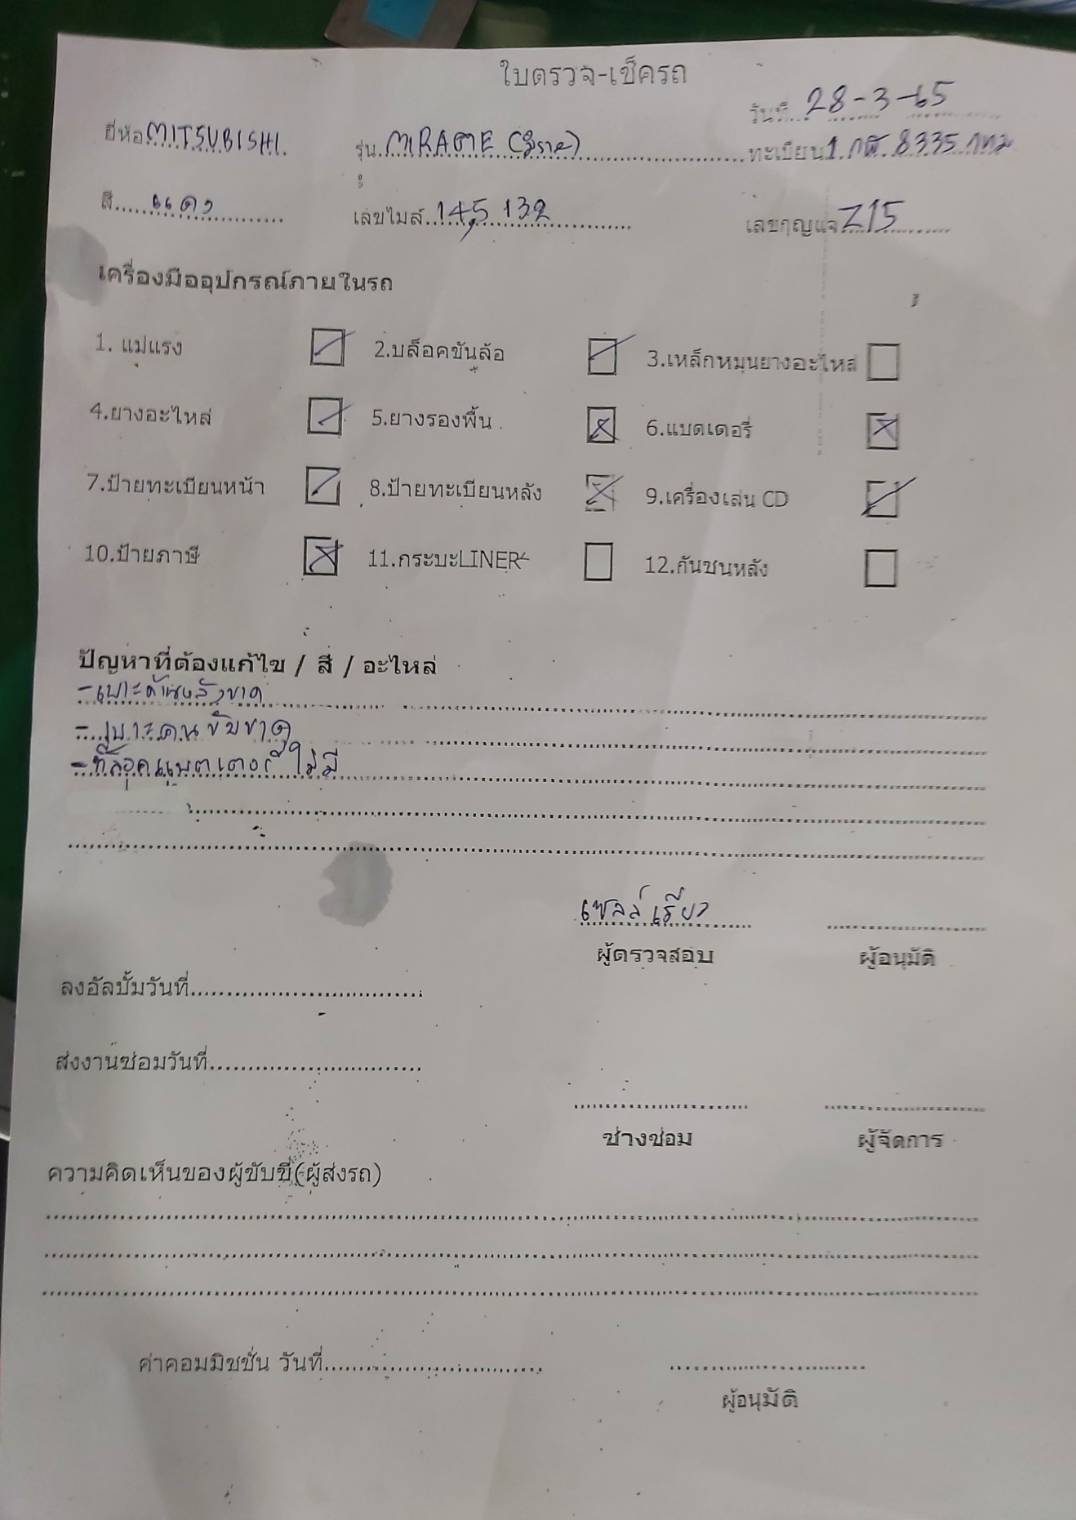 ใบตรวจ-เช็ครถ
วันที่ 28-3-65
ยี่ห้อ MITSUBISHI. รุ่น MIRAGE ทะเบียน 1 กศ 8335 กทม
สี แดง เลขไมล์ 145,132 เลขกุญแจ Z15
เครื่องมืออุปกรณ์ภายในรถ
1. แม่แรง 2.บล็อคขันล้อ 3.เหล็กหมุนยางอะไหล่
4.ยางอะไหล่ 5.ยางรองพื้น 6.แบตเตอรี่
7.ป้ายทะเบียนหน้า 8.ป้ายทะเบียนหลัง 9.เครื่องเล่น CD
10.ป้ายภาษี 11.กระบะLINER 12.กันชนหลัง
ปัญหาที่ต้องแก้ไข / สี / อะไหล่
- เบาะด้านหลังขาด
- เบาะคนขับขาด
- ที่ล็อคแบตเตอรี่ ไม่มี
เซลล์ เรียว
ผู้ตรวจสอบ ผู้อนุมัติ
ลงอัลบั้มวันที่
ส่งงานซ่อมวันที่
ช่างซ่อม ผู้จัดการ
ความคิดเห็นของผู้ขับขี่(ผู้ส่งรถ)
ค่าคอมมิชชั่น วันที่
ผู้อนุมัติ